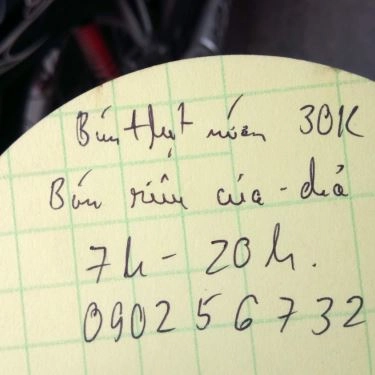 Bún thịt nướng 30K
Bún riêu cua - chả
7h - 20h.
090256732